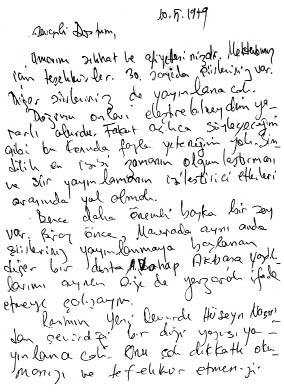 10.5.1979
Sevgili Dostum,
Umarım sıhhat ve afiyettesinizdir. Mektubunuz
için teşekkürler. 30. sayıda şiirleriniz var.
Diğer şiirleriniz de yayınlanacak.
Doğrusu onları eleştirebilseydim ya-
rarlı olurdu. Fakat açıkça söyleyeceğim
gibi bu konuda fazla yeteneğim yok. Şim-
dilik en iyisi zamanın olgunlaştırması
ve şiir yayınlamanın iyileştirici etkileri
arasında yol almak.
Bence daha önemli başka bir şey
var. Biraz önce, Mavera'da aynı anda
şiirleriniz yayınlanmaya başlanan
diğer bir dosta A. Vahap Akbaş'a yazdık-
larımı aynen size de yazarak ifade
etmeye çalışayım.
Rasim'in Yeni Devir'de Hüseyn Nasr'
dan çevirdiği bir dizi yazısı ya-
yınlanacak. Onu çok dikkatli oku-
manızı ve tefekkür etmenizi